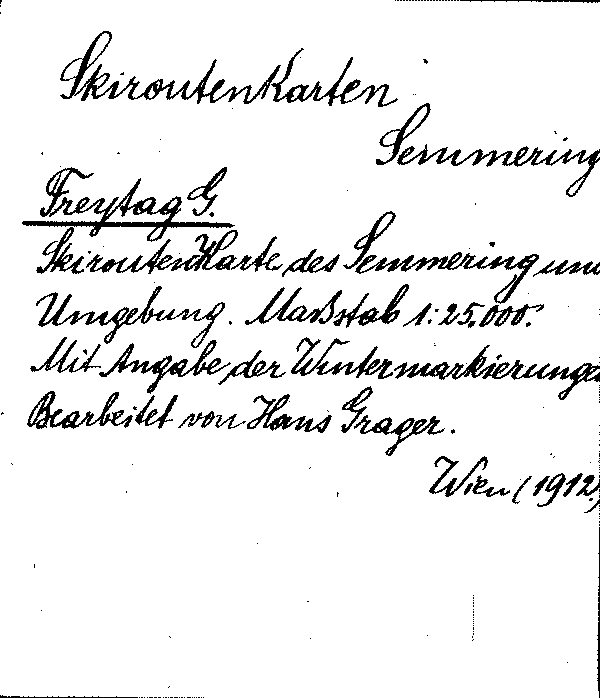 Skiroutenkarten
Semmering
Freytag G.
Skiroutenkarte des Semmering und
Umgebung. Maßstab 1:25.000.
Mit Angabe der Wintermarkierungen
Bearbeitet von Hans Grager.
Wien (1912.)